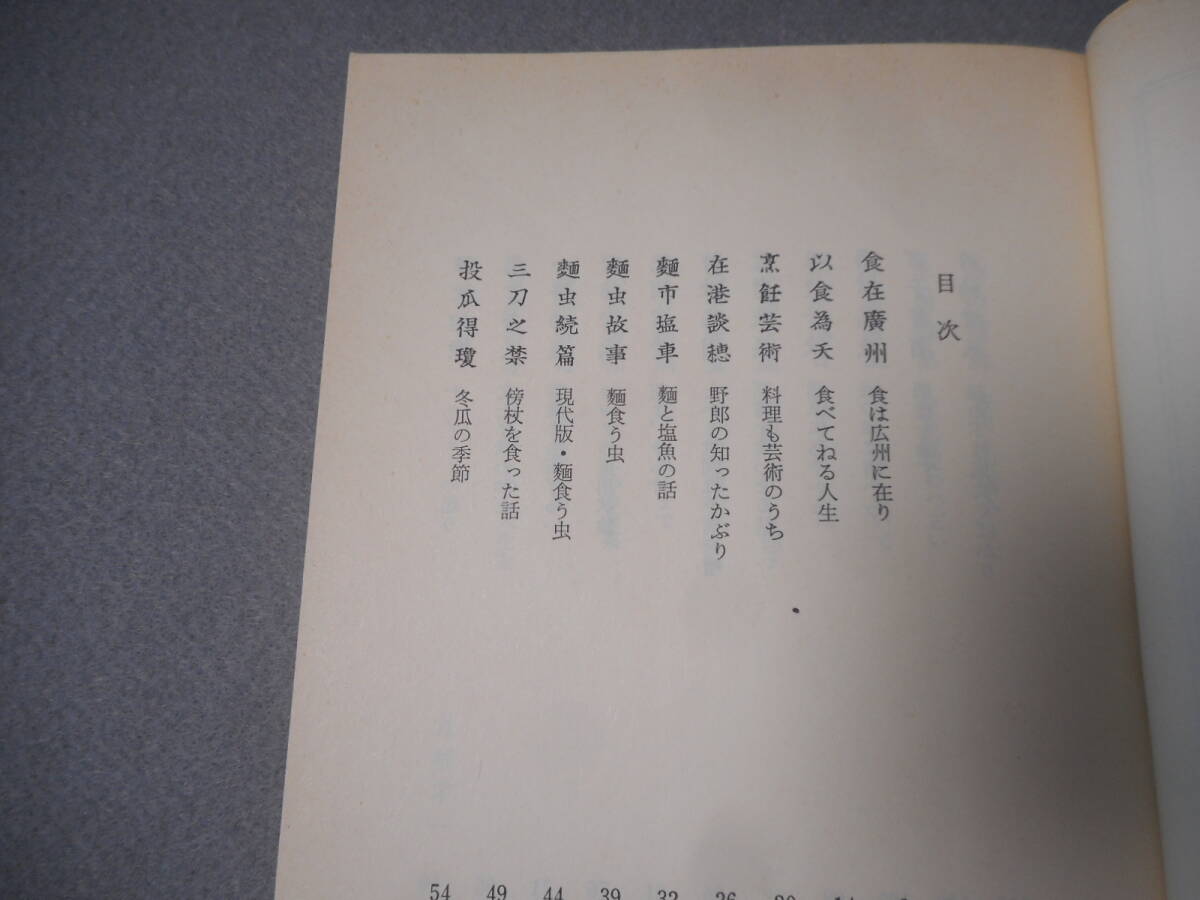 目次
食在廣州 食は広州に在り
以食為天 食べてねる人生
烹飪芸術 料理も芸術のうち
在港談穂 野郎の知ったかぶり
麵市塩車 麵と塩魚の話 32
麵虫故事 麵食う虫 39
麵虫続篇 現代版・麵食う虫 44
三刀之禁 傍杖を食った話 49
投瓜得瓊 冬瓜の季節 54